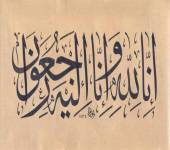 انا لله وانا اليه راجعون